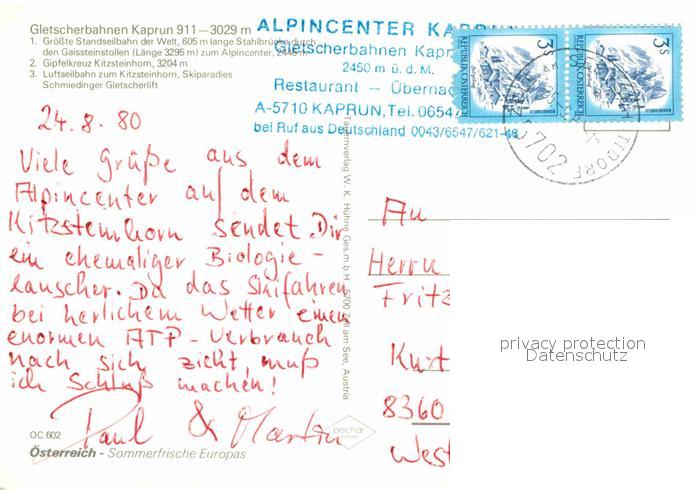 Gletscherbahnen Kaprun 911—3029 m
1. Größte Standseilbahn der Welt, 605 m lange Stahlbrücke durch
den Gaissteinstollen (Länge 3295 m) zum Alpincenter, 2446 m
2. Gipfelkreuz Kitzsteinhorn, 3204 m
3. Luftseilbahn zum Kitzsteinhorn, Skiparadies
Schmiedinger Gletscherlift
ALPINCENTER KAPRUN
Gletscherbahnen Kapr
2450 m ü. d. M.
Restaurant — Übernac
A-5710 KAPRUN, Tel. 06547
bei Ruf aus Deutschland 0043/6547/621-46
3S
REPUBLIK ÖSTERREICH
3S
REPUBLIK ÖSTERREICH
5702
24.8.80
Viele Grüße aus dem
Alpincenter auf dem
Kitzsteinhorn sendet Dir
ein ehemaliger Biologie-
lauscher. Da das Skifahren
bei herlichem Wetter einen
enormen ATP-Verbrauch
nach sich zieht, muß
ich Schluß machen!
Paul & Martin
An
Herrn
Fritz
Kurt
8360
West
Tauernverlag W. K. Hühne Ges.m.b.H., 5700 Zell am See, Austria
privacy protection
Datenschutz
OC 602
Österreich - Sommerfrische Europas